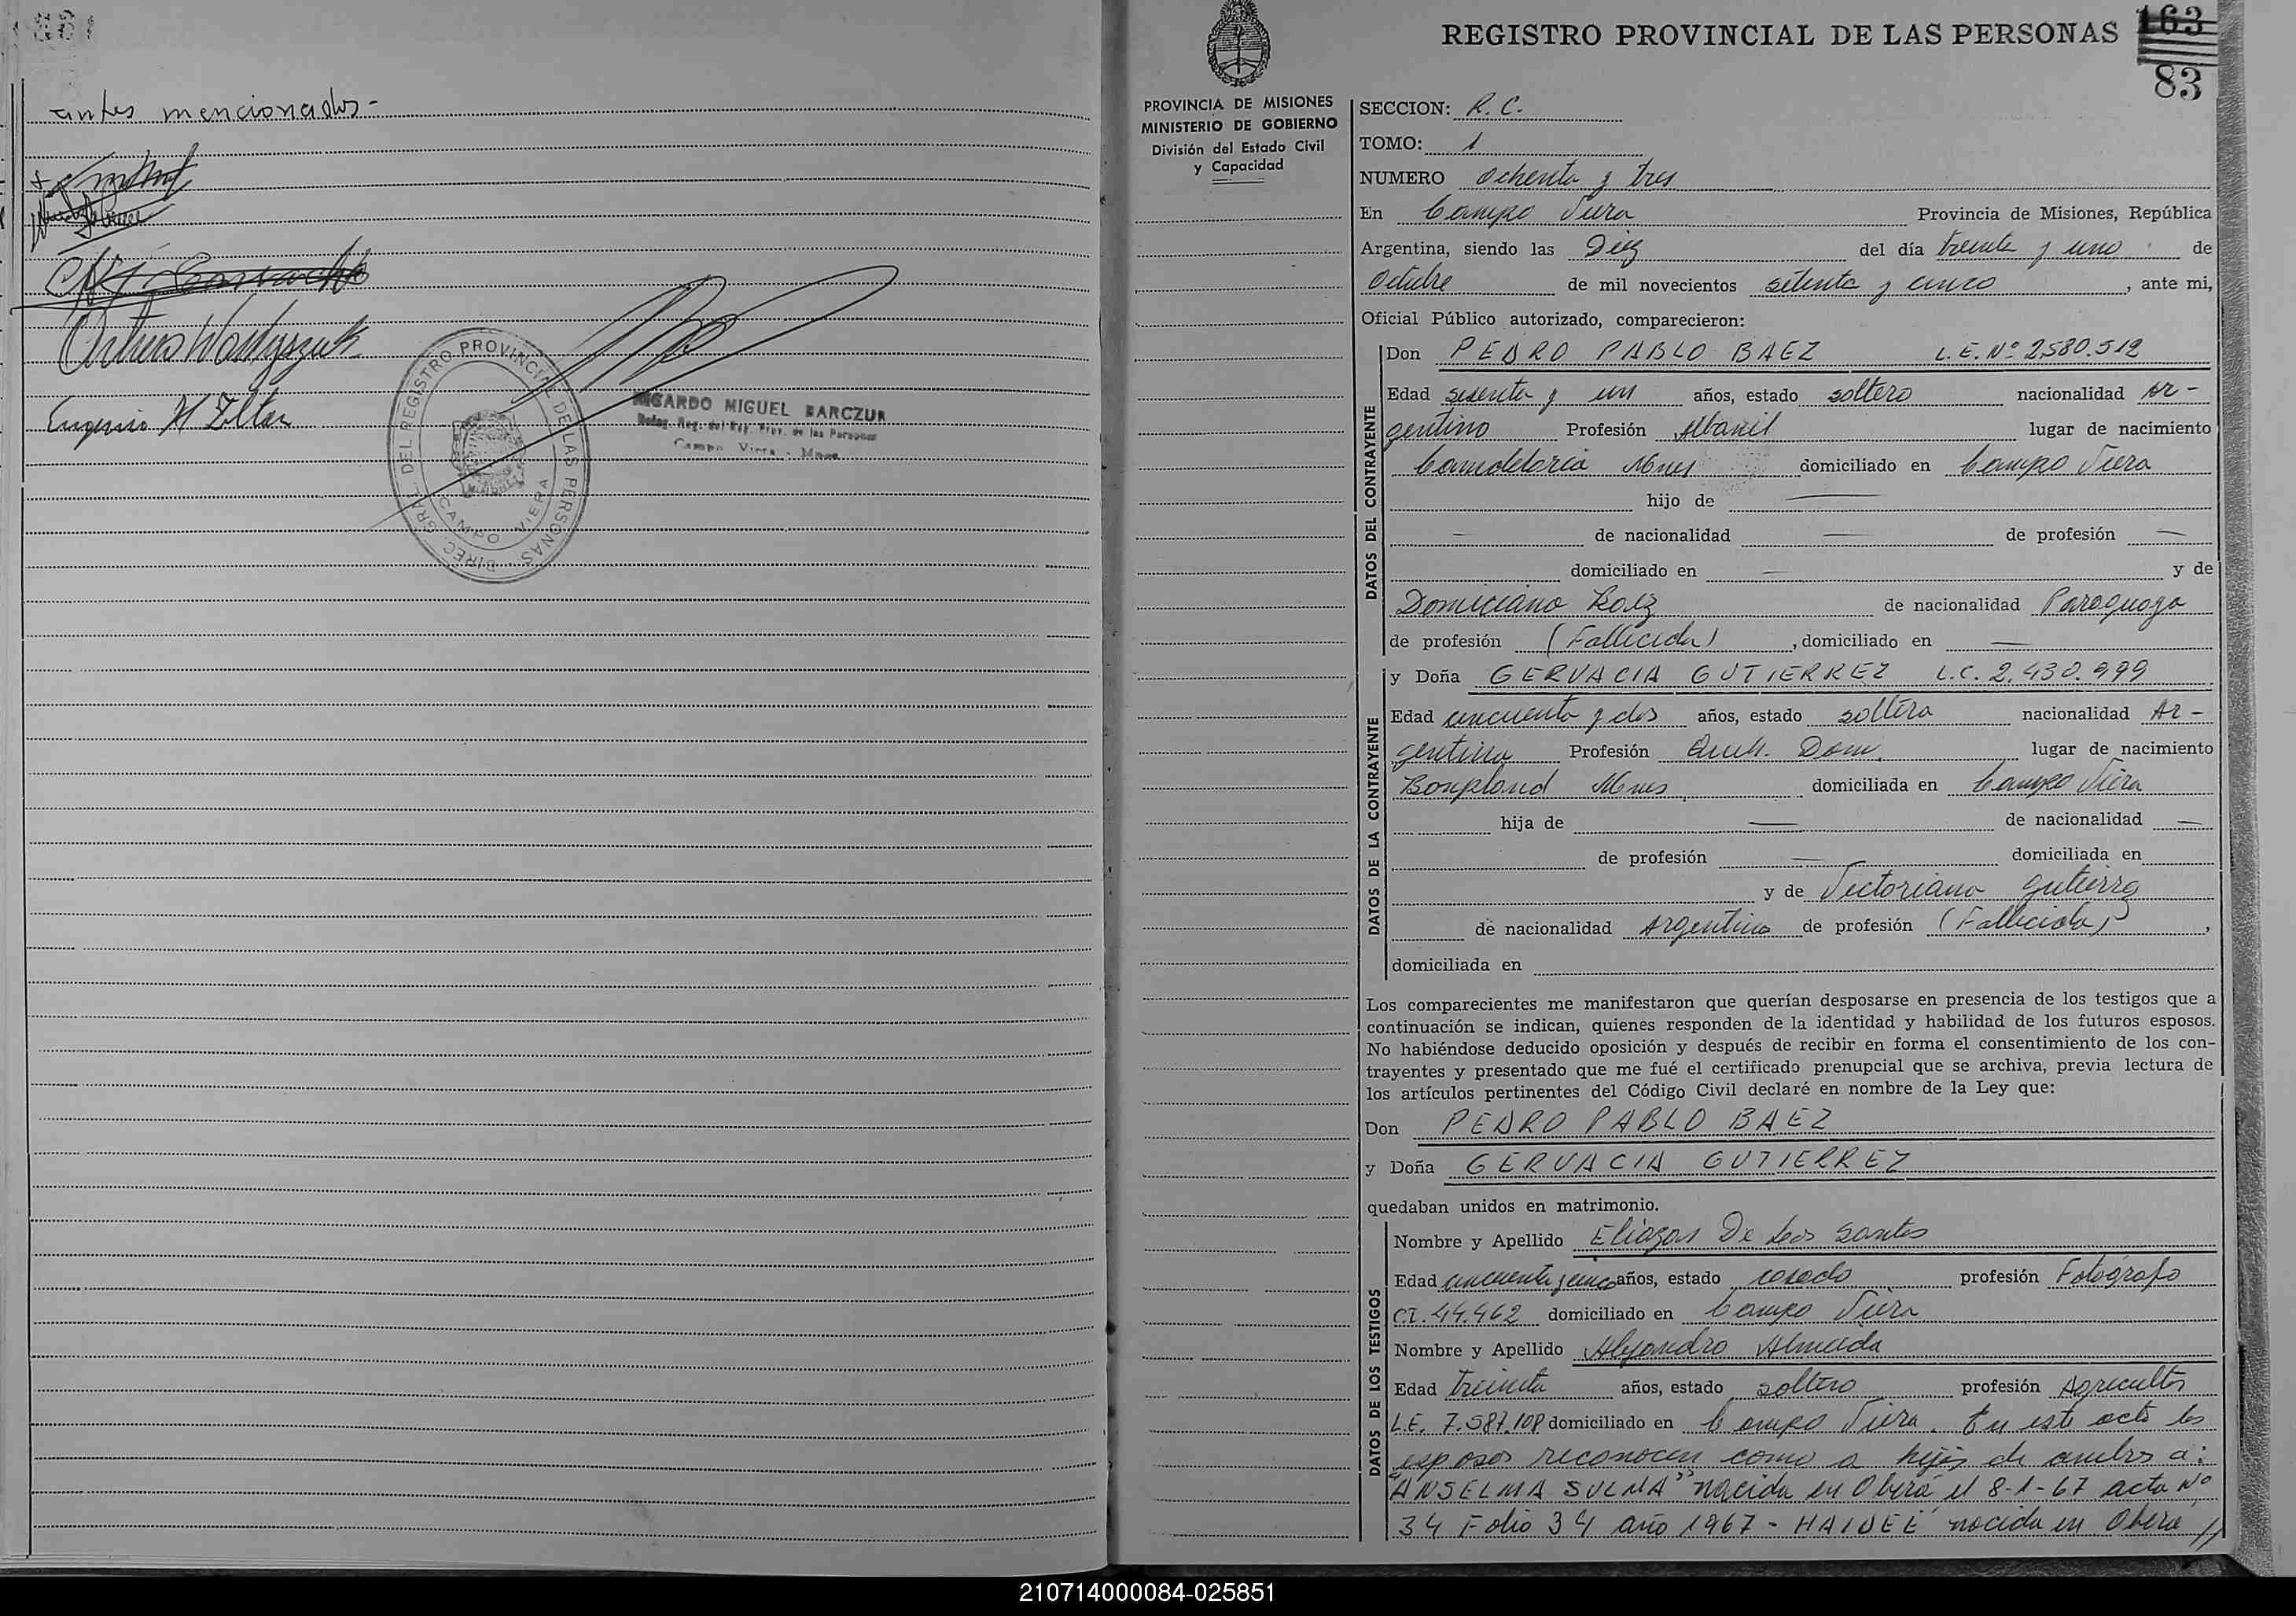 antes mencionados-
Arturo Wostyszuk
Eugenio H Zoltan
DIREC. GRAL. DEL REGISTRO PROVINCIAL DE LAS PERSONAS
CAMPO VIERA
RICARDO MIGUEL BARCZUK
Deleg. Reg. del Reg. Prov. de las Personas
Campo Viera - Mnes.
REGISTRO PROVINCIAL DE LAS PERSONAS
163
83
PROVINCIA DE MISIONES
MINISTERIO DE GOBIERNO
División del Estado Civil
y Capacidad
SECCION: R. C.
TOMO: 1
NUMERO Ochenta y tres
En Campo Viera Provincia de Misiones, República
Argentina, siendo las Diez del día treinta y uno de
Octubre de mil novecientos setenta y cinco, ante mi,
Oficial Público autorizado, comparecieron:
DATOS DEL CONTRAYENTE
Don PEDRO PABLO BAEZ L.E. Nº 2580.512
Edad sesenta y un años, estado soltero nacionalidad Ar-
gentino Profesión Albañil lugar de nacimiento
Candelaria Mnes domiciliado en Campo Viera
hijo de —
— de nacionalidad — de profesión —
domiciliado en — y de
Domiciana Baez de nacionalidad Paraguaya
de profesión (Fallecida), domiciliado en —
DATOS DE LA CONTRAYENTE
y Doña GERVACIA GUTIERREZ L.C. 2.430.999
Edad cincuenta y dos años, estado soltera nacionalidad Ar-
gentina Profesión Queh. Dom. lugar de nacimiento
Bonpland Mnes domiciliada en Campo Viera
hija de — de nacionalidad —
de profesión — domiciliada en
y de Victoriana Gutierrez
de nacionalidad Argentina de profesión (Fallecida),
domiciliada en
Los comparecientes me manifestaron que querían desposarse en presencia de los testigos que a
continuación se indican, quienes responden de la identidad y habilidad de los futuros esposos.
No habiéndose deducido oposición y después de recibir en forma el consentimiento de los con-
trayentes y presentado que me fué el certificado prenupcial que se archiva, previa lectura de
los artículos pertinentes del Código Civil declaré en nombre de la Ley que:
Don PEDRO PABLO BAEZ
y Doña GERVACIA GUTIERREZ
quedaban unidos en matrimonio.
DATOS DE LOS TESTIGOS
Nombre y Apellido Eliazar De Los Santos
Edad cincuenta y cinco años, estado casado profesión Fotógrafo
C.I. 44.462 domiciliado en Campo Viera
Nombre y Apellido Alejandro Almeida
Edad treinta años, estado soltero profesión Agricultor
L.E. 7.587.108 domiciliado en Campo Viera. En este acto los
esposos reconocen como a hijos de ambos a:
"ANSELMA SULMA" nacida en Oberá el 8-1-67 acta Nº
34 Folio 34 año 1967 - HAIDEE nacida en Obera //
210714000084-025851